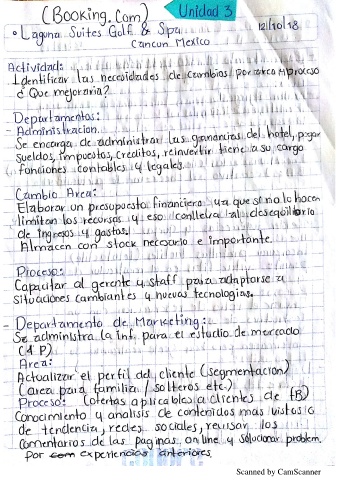 (Booking.Com) Unidad 3
• Laguna Suites Golf & Spa 12/10/18
Cancun Mexico
Actividad:
Identificar las necesidades de cambios por area y proceso
¿ Que mejoraria?
Departamentos:
- Administracion.
Se encarga de administrar las ganancias del hotel, pagar
sueldos, impuestos, creditos, reinvertir tiene a su cargo
funciones contables y legales.
Cambio Area:
Elaborar un presupuesto financiero ya que si no lo hacen
limitan los recursos y eso conlleva al desequilibrio
de ingresos y gastos.
Almacen con stock necesario e importante.
Proceso:
Capacitar al gerente y staff para adaptarse a
situaciones cambiantes y nuevas tecnologias.
- Departamento de Marketing:
Se administra la inf. para el estudio de mercado
(4 P)
Area:
Actualizar el perfil del cliente (segmentacion)
(area para familia / solteros etc.)
Proceso: (ofertas aplicables a clientes de FB)
Conocimiento y analisis de contenidos mas vistos o
de tendencia, redes sociales, revisar los
comentarios de las paginas online y solucionar problem.
por experiencias anteriores
Scanned by CamScanner